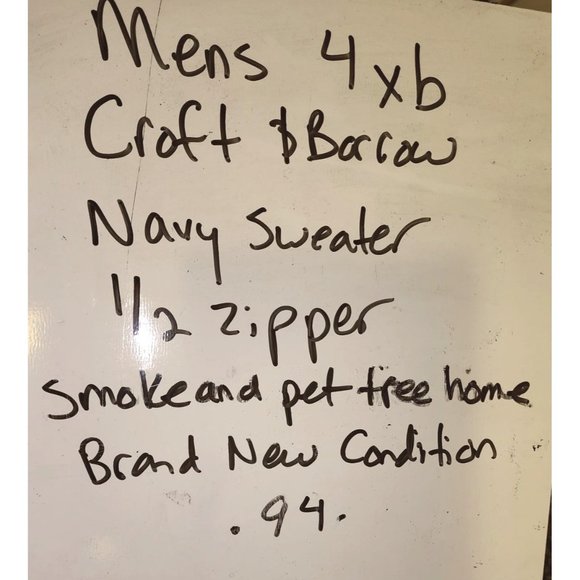 Mens 4xb
Croft & Barrow
Navy Sweater
1/2 zipper
Smoke and pet free home
Brand New Condition
.94.